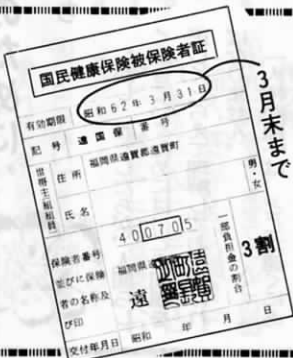 国民健康保険被保険者証
有効期限 昭和62年3月31日
3月末まで
記号 遠国保 番号
世帯主組合員
住所 福岡県遠賀郡遠賀町
氏名
男・女
保険者番号 40 0705
並びに保険者の名称及び印
福岡県
遠
一部負担金の割合
3割
交付年月日 昭和 年 月 日